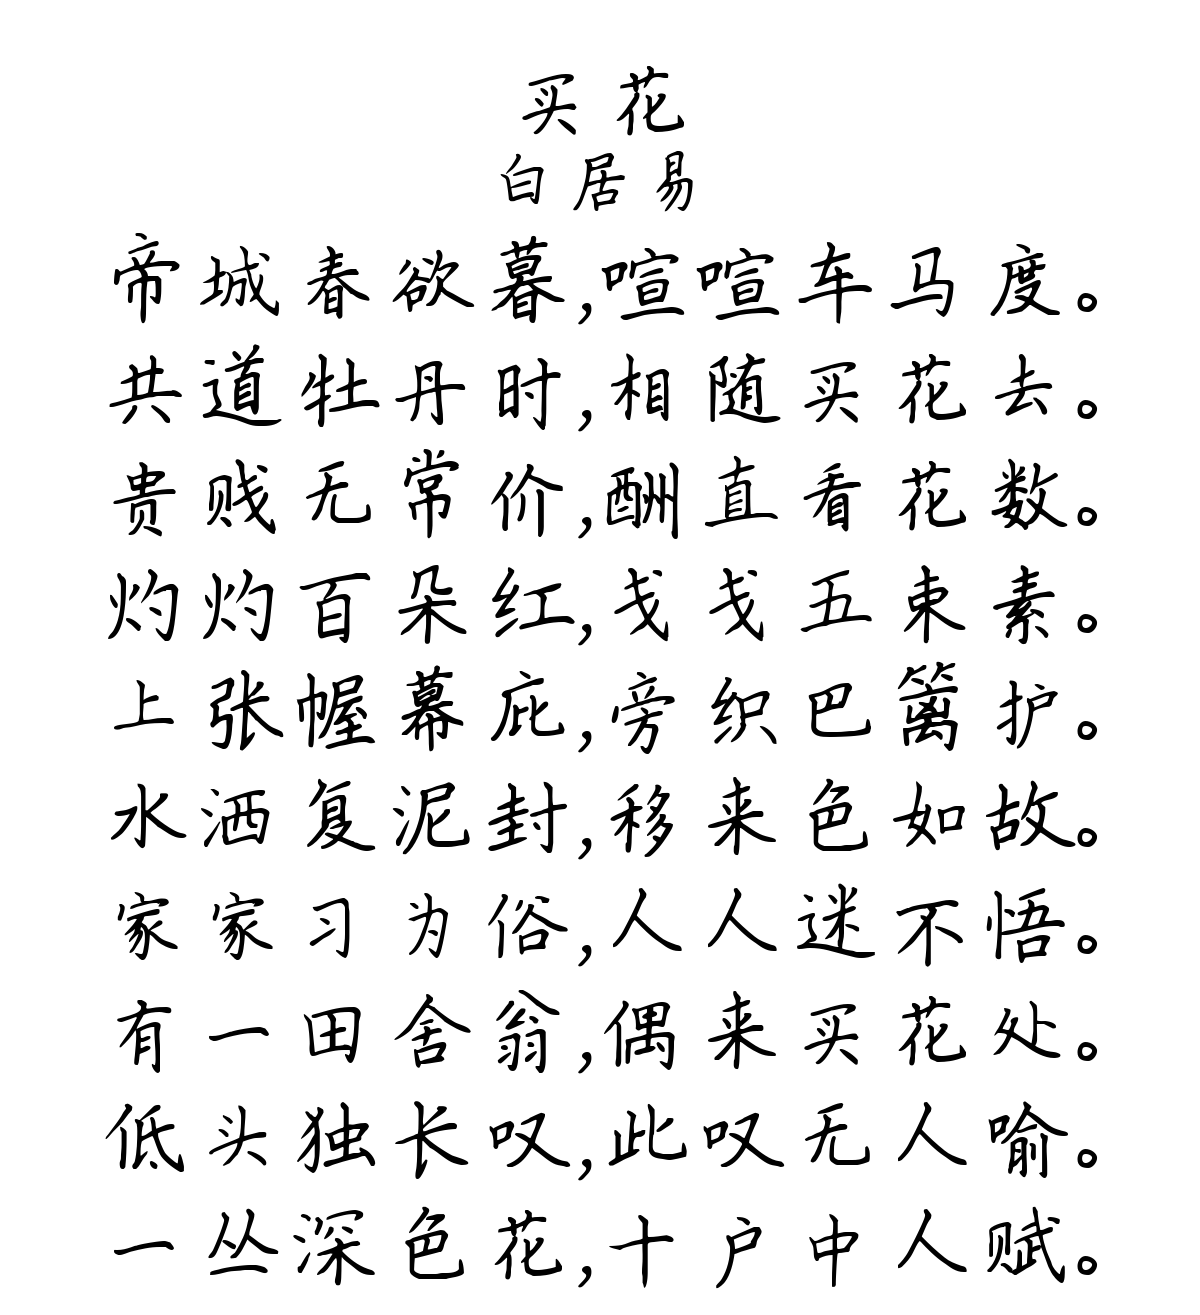 买花
白居易
帝城春欲暮,喧喧车马度。
共道牡丹时,相随买花去。
贵贱无常价,酬直看花数。
灼灼百朵红,戋戋五束素。
上张幄幕庇,旁织巴篱护。
水洒复泥封,移来色如故。
家家习为俗,人人迷不悟。
有一田舍翁,偶来买花处。
低头独长叹,此叹无人喻。
一丛深色花,十户中人赋。